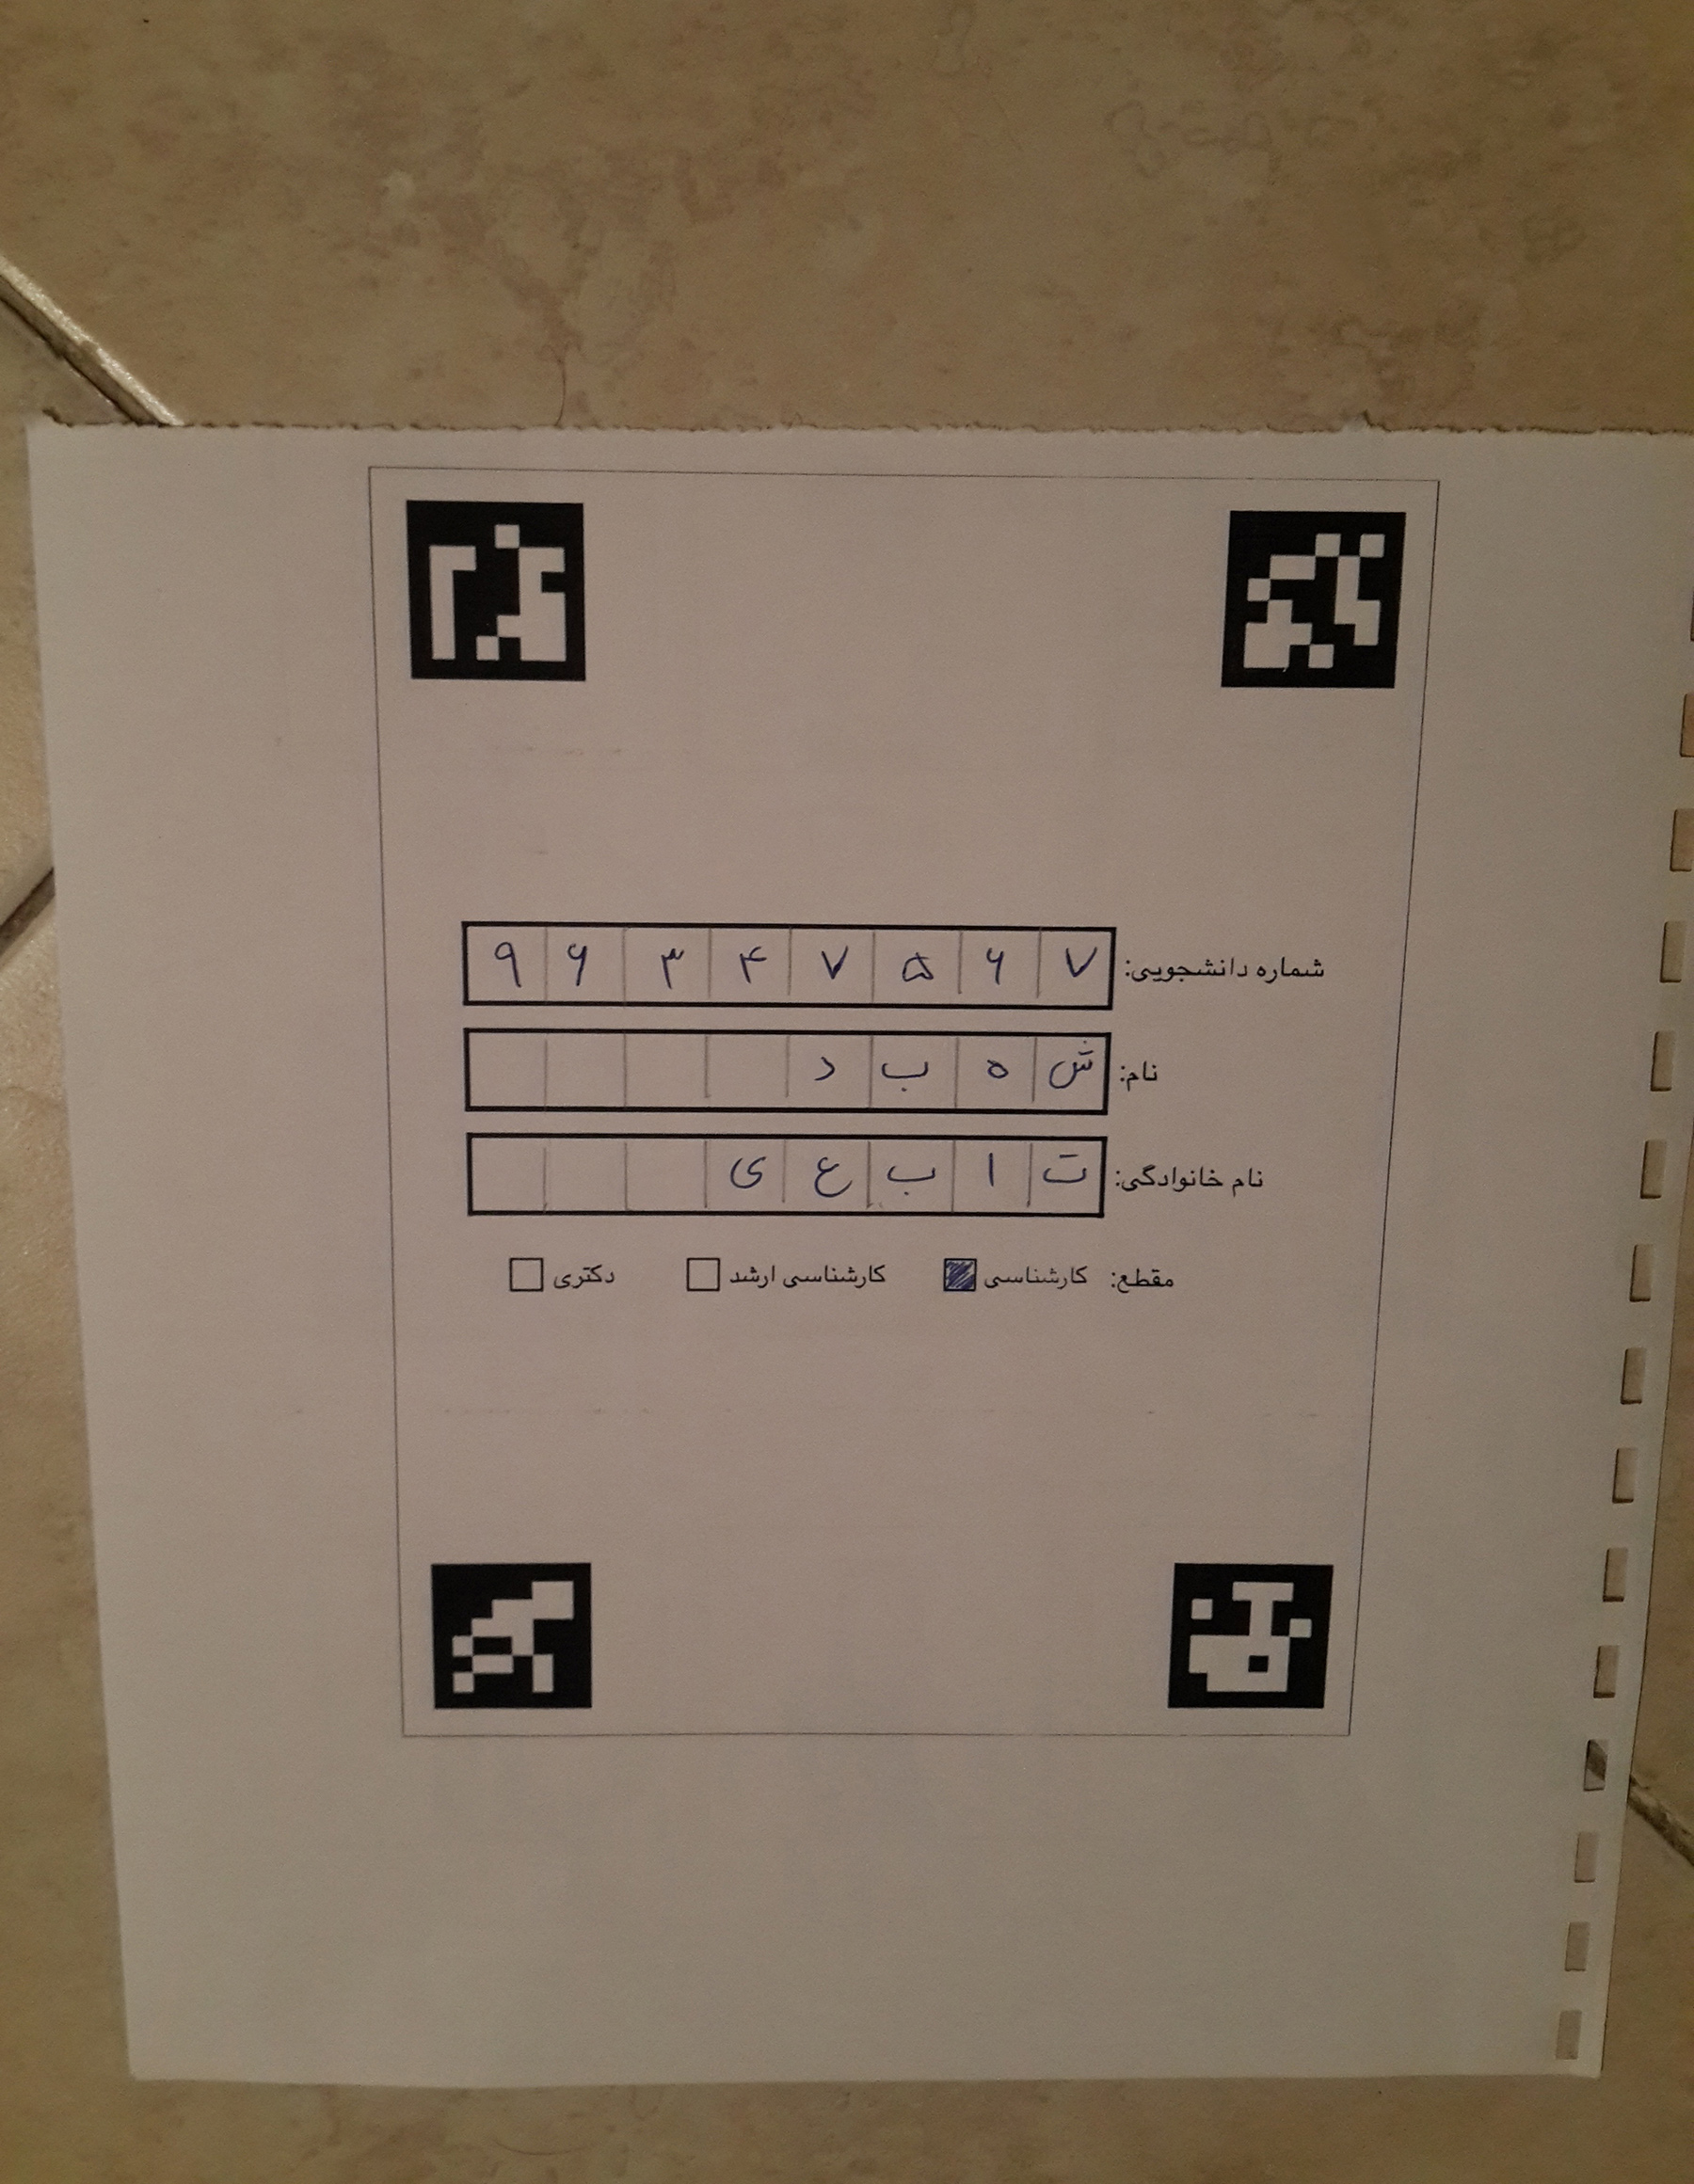 شماره دانشجویی: ۹۶۳۴۷۵۶۷
نام: ش ه ب د
نام خانوادگی: ت ا ب ع ی
مقطع: کارشناسی کارشناسی ارشد دکتری